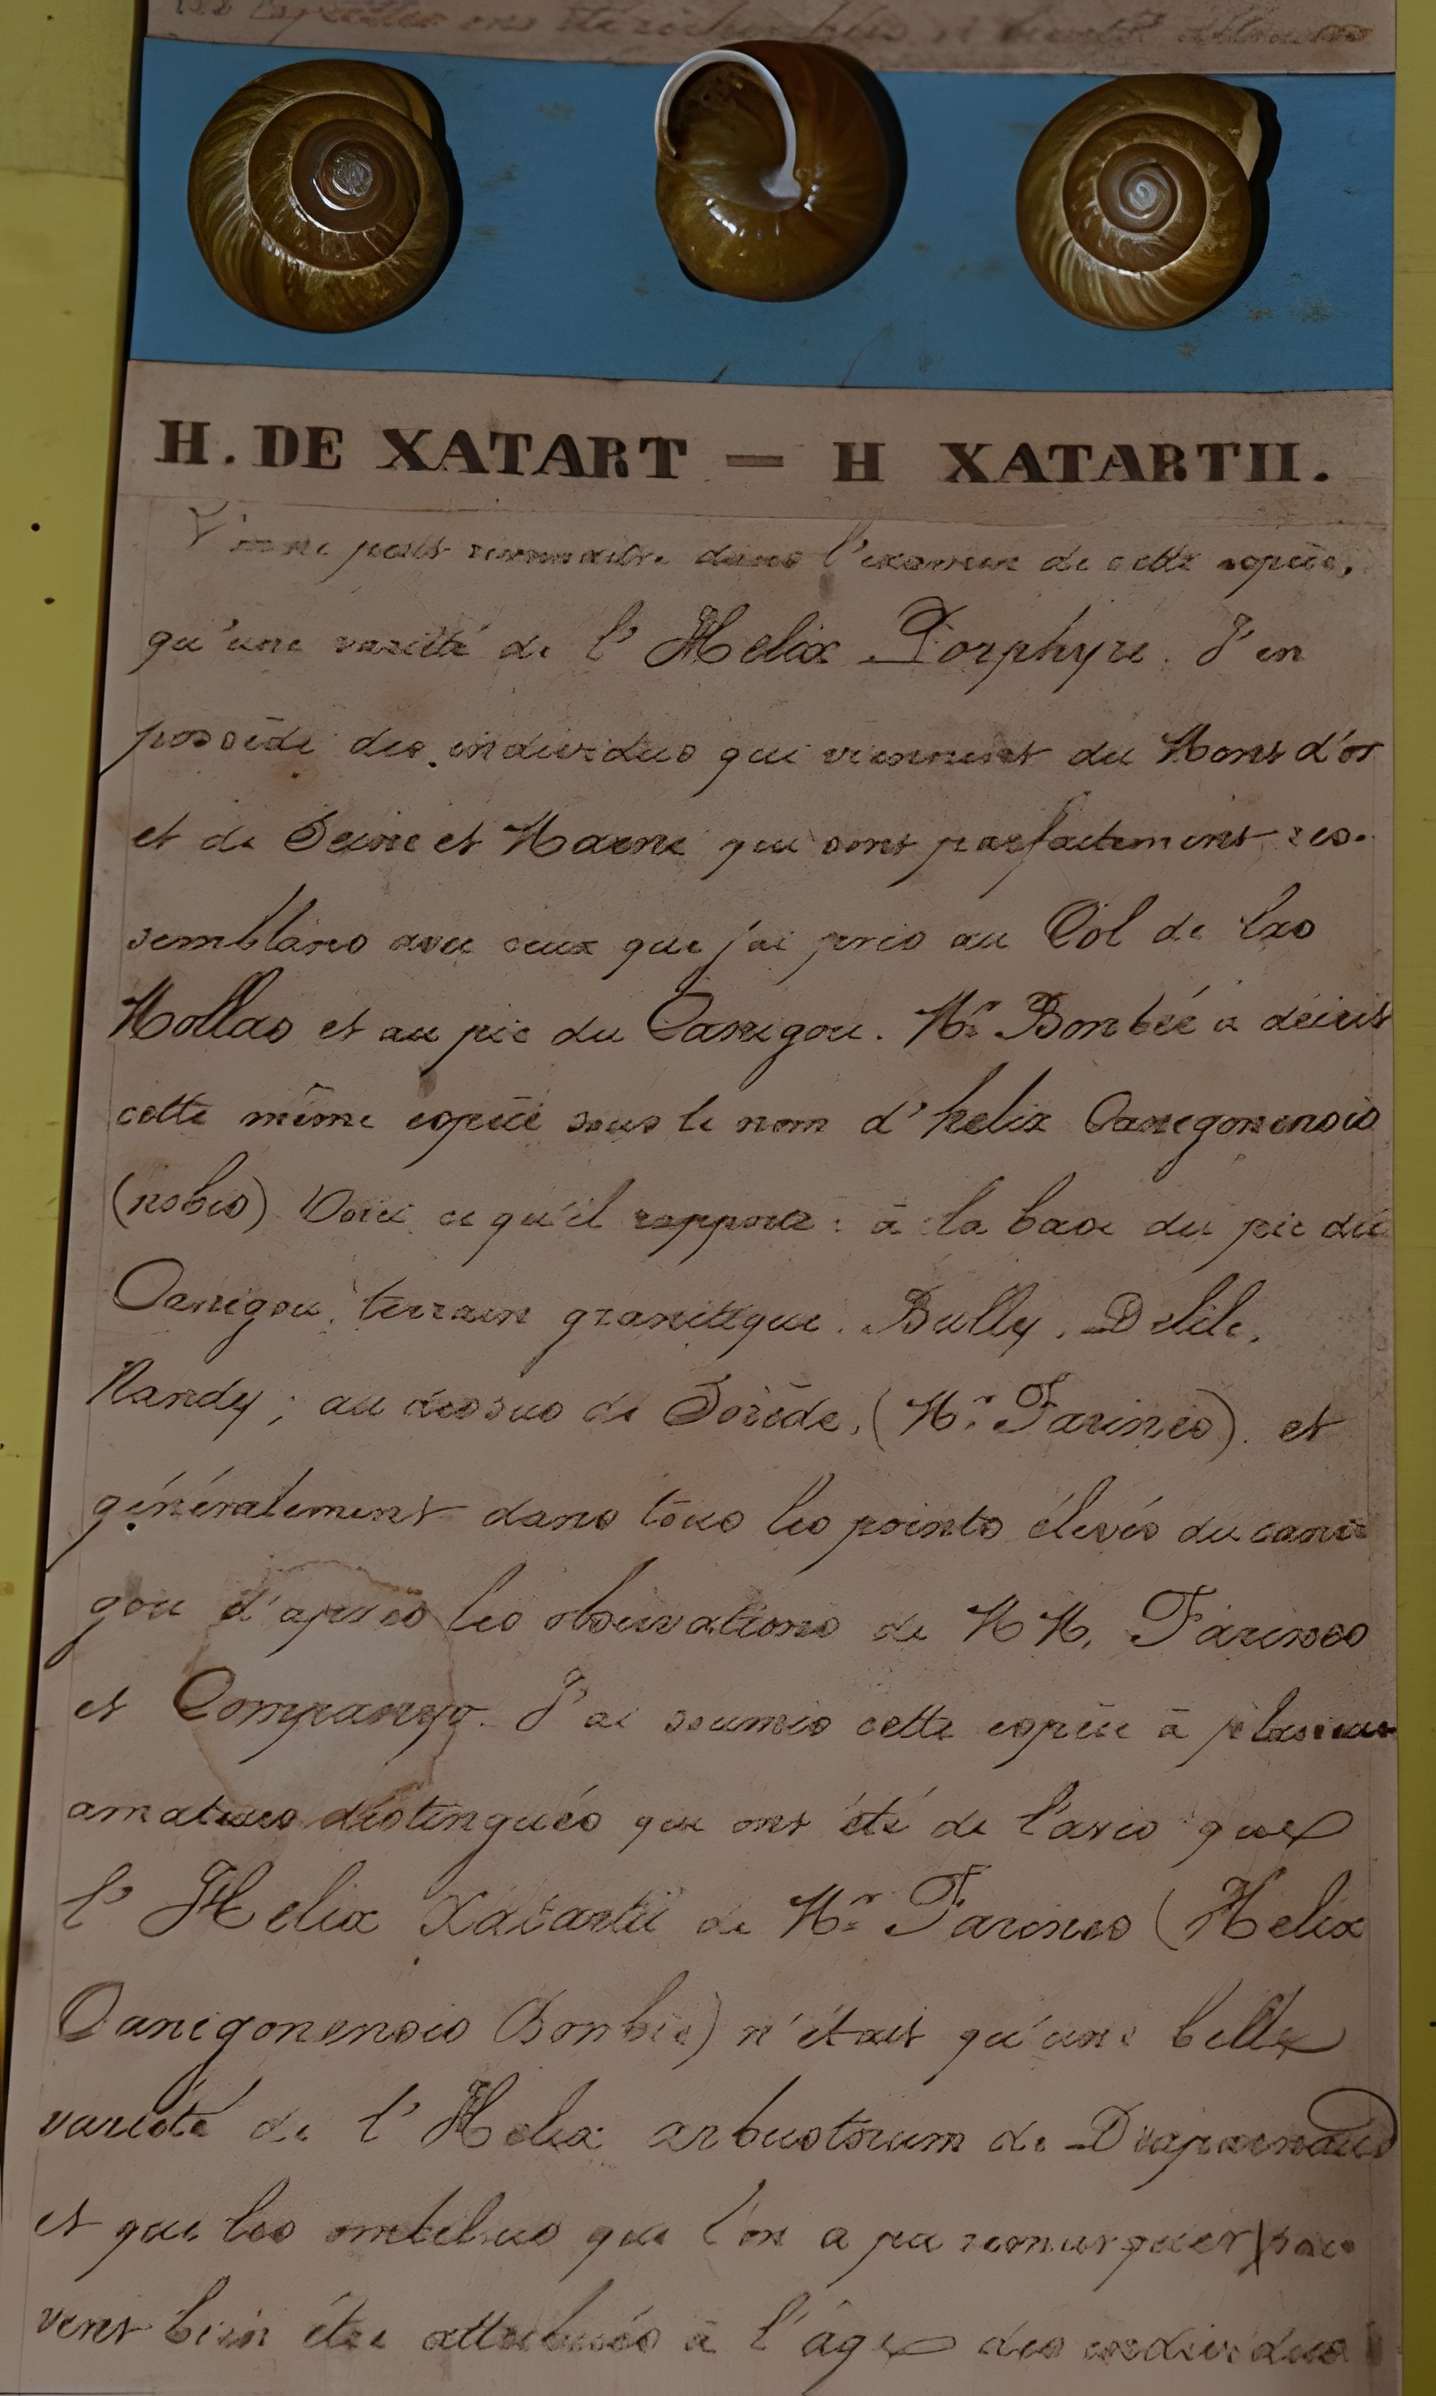 H. DE XATART — H XATARTII.
ne puis reconnaitre dans l'examen de cette espèce,
qu'une variété de l'Helix Porphyre. J'en
possède des individus qui viennent du Mont d'or
et de Seine et Marne qui sont parfaitement res-
semblans avec ceux que j'ai pris au Col de las
Mollas et au pic du Canigou. Mr Boubée a décrit
cette même espèce sous le nom d'helix Canigonensis
(nobis) Voici ce qu'il rapporte : à la base du pic du
Canigou, terrain granitique. Bully, Delile,
Nandy ; au dessus de Sorède, (Mr Farines) et
généralement dans tous les points élevés du cani
gou d'après les observations de MM. Farines
et Companyo. J'ai soumis cette espèce à plusieurs
amateurs distingués qui ont été de l'avis que
l'Helix Xatartii de Mr Farines (Helix
Canigonensis Boubée) n'était qu'une belle
variété de l'Helix arbustorum de Draparnaud
et que les ombelics que l'on a pu remarquer peu
vent bien être attribués à l'âge des individus